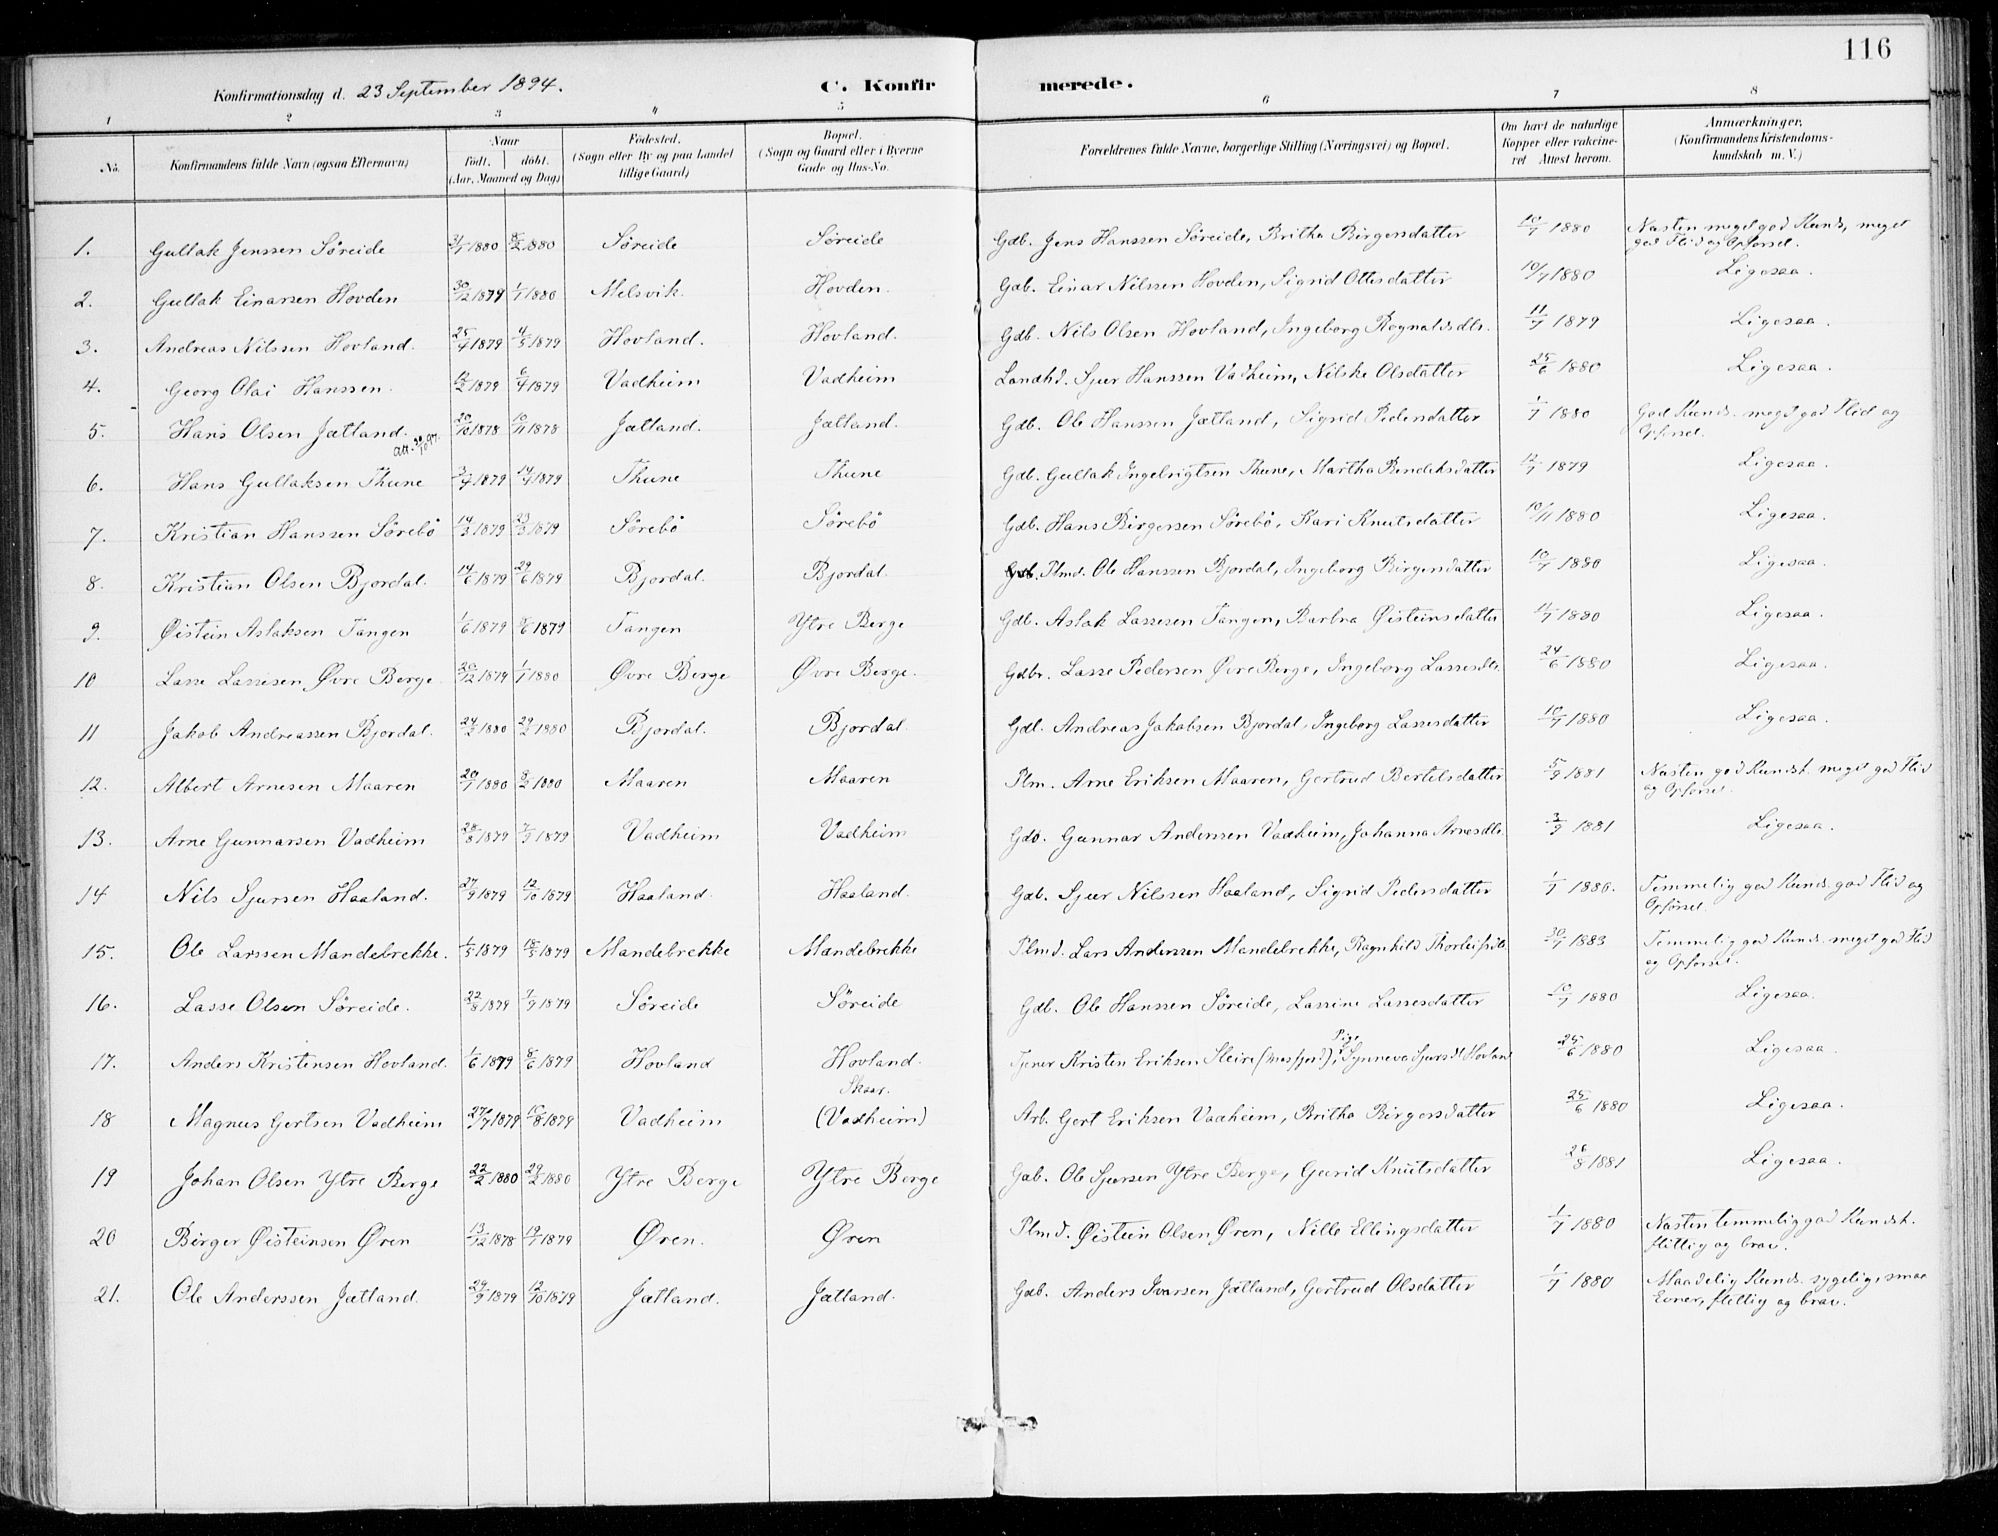 116
Konfirmationsdag d. 23 September 1894. C. Konfirmerede.
1 2 3 4 5 6 7 8
No. Konfirmandens fulde Navn (ogsaa Efternavn) Naar født. døbt. (Aar, Maaned og Dag) Fødested. (Sogn eller By og paa Landet tillige Gaard) Bopæl. (Sogn og Gaard eller i Byerne Gade og Hus-No. Forældrenes fulde Navne, borgerlige Stilling (Næringsvei) og Bopæl. Om havt de naturlige Kopper eller vakcineret Attest herom. Anmærkninger, (Konfirmandens Kristendomskundskab m. V.)
1. Gullak Jenssen Søreide 31/1 1880 8/2 1880 Søreide Søreide Gdb. Jens Hanssen Søreide, Britha Birgersdatter 10/7 1880 Næsten meget god Kunds, meget god Flid og Opførsel.
2. Gullak Einarsen Hovden 30/12 1879 1/1 1880 Melsvik. Hovden. Gdb. Einar Nilssen Hovden, Sigrid Ottesdatter 10/7 1880 Ligesaa.
3. Andreas Nilssen Hovland. 25/4 1879 4/5 1879 Hovland. Hovland. Gdb. Nils Olsen Hovland, Ingeborg Rognaldsdtr. 11/7 1879 Ligesaa.
4. Georg Olai Hanssen. 1879 6/4 1879 Vadheim Vadheim Landhd. Sjur Hanssen Vadheim, Nilske Olsdatter 25/6 1880 Ligesaa.
5. Hans Olsen Jætland. 20/10 1878 10/11 1878 Jætland. Jætland. Gdb. Ole Hanssen Jætland, Sigrid Pedersdatter 1/7 1880 God Kunds. meget god Flid og Opførsel.
Att. 30/10 97.
6. Hans Gullaksen Thune 3/4 1879 14/4 1879 Thune Thune Gdb. Gullak Ingebrigtsen Thune, Martha Bendiksdatter 12/7 1879 Ligesaa.
7. Kristian Hanssen Sørebø 14/3 1879 23/3 1879 Sørebø Sørebø Gdb. Hans Birgersen Sørebø, Kari Knutsdatter 10/11 1880 Ligesaa.
8. Kristian Olsen Bjordal. 14/6 1879 29/6 1879 Bjordal. Bjordal. Plmd. Ole Hanssen Bjordal, Ingeborg Birgersdatter 10/7 1880 Ligesaa.
9. Øistein Aslaksen Tangen 1/6 1879 8/6 1879 Tangen Ytre Berge Gdb. Aslak Lassesen Tangen, Barbra Øisteinsdatter 1880 Ligesaa.
10 Lasse Lassesen Øvre Berge. 20/12 1879 1/1 1880 Øvre Berge Øvre Berge. Gdbr. Lasse Pedersen Øvre Berge, Ingeborg Lassesdtr. 24/6 1880 Ligesaa.
11 Jakob Andreassen Bjordal. 24/2 1880 29/2 1880 Bjordal. Bjordal. Gdb. Andreas Jakobsen Bjordal, Ingeborg Lassesdatter 10/7 1880 Ligesaa.
12. Albert Arnesen Maaren 20/1 1880 8/2 1880 Maaren Maaren Plm. Arne Eriksen Maaren, Gertrud Bertelsdatter 5/9 1881 Næsten god Kundsk. meget god Flid og Opførsel.
13. Arne Gunnarsen Vadheim 28/8 1879 7/9 1879 Vadheim Vadheim Gdb. Gunnar Anderssen Vadheim, Johanna Arnesdtr. 3/9 1881 Ligesaa.
14 Nils Sjursen Haaland. 27/9 1879 12/10 1879 Haaland. Haaland. Gdb. Sjur Nilssen Haaland, Sigrid Pedersdatter 1/7 1880. Temmelig god Kunds. god Flid og Opførsel.
15. Ole Larssen Mandebrekke. 1/5 1879 18/5 1879 Mandebrekke Mandebrekke Plmd. Lars Anderssen Mandebrekke, Ragnhild Thorleifsdtr 1883 Temmelig god Kunds. meget god Flid og Opførsel.
16. Lasse Olsen Søreide. 22/8 1879 7/9 1879 Søreide Søreide Gdb. Ole Hanssen Søreide, Lassine Lassesdatter 10/7 1880 Ligesaa.
17. Anders Kristensen Hovland. 1/6 1879 8/6 1879 Hovland Hovland. Tjener Kristen Eriksen Sleire (Masfjord), Pige Synneva Sjursdt Hovland 25/6 1880 Ligesaa.
18 Magnus Gertsen Vadheim 27/7 1879 10/8 1879 Vadheim Skaar. (Vadheim) Arb. Gert Eriksen Vadheim, Britha Birgersdatter 25/6 1880 Ligesaa.
19 Johan Olsen Ytre Berge 22/2 1880 29/2 1880 Ytre Berge Ytre Berge Gdb. Ole Sjursen Ytre Berge, Gurid Knutsdatter 26/8 1881 Ligesaa.
20 Birger Øisteinsen Øren 13/12 1878 19/1 1879 Øren. Øren Plmd. Øistein Olsen Øren, Nille Ellingsdatter 1/7 1880 Næsten temmelig god Kundsk. flittig og brav.
21. Ole Anderssen Jætland. 29/9 1879 12/10 1879 Jætland. Jætland. Gdb. Anders Ivarsen Jætland, Gertrud Olsdatter 1/7 1880 Maadelig Kunds. sygelig, smaa Evner, flittig og brav.